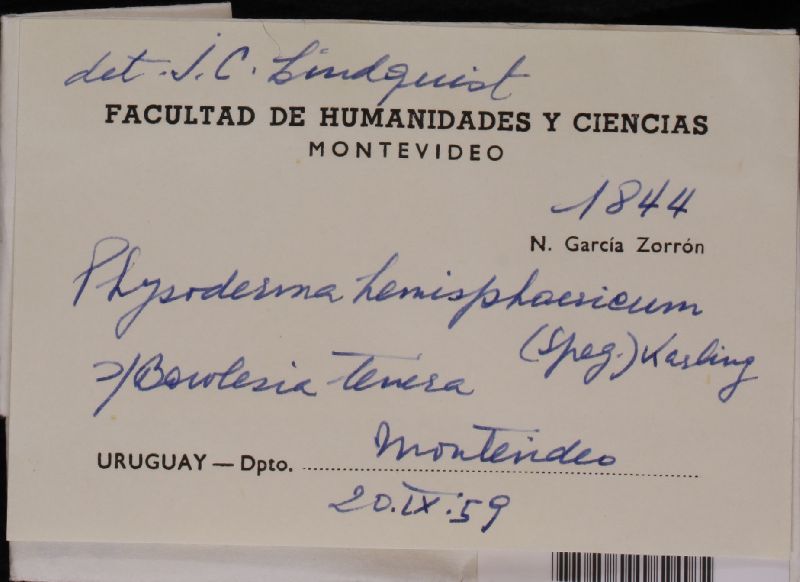 det. J. C. Lindquist
FACULTAD DE HUMANIDADES Y CIENCIAS
MONTEVIDEO
1844
N. García Zorrón
Physoderma hemisphaericum
(Speg.) Karling
s/Bowlesia tenera
URUGUAY — Dpto. Montevideo
20.IX.59